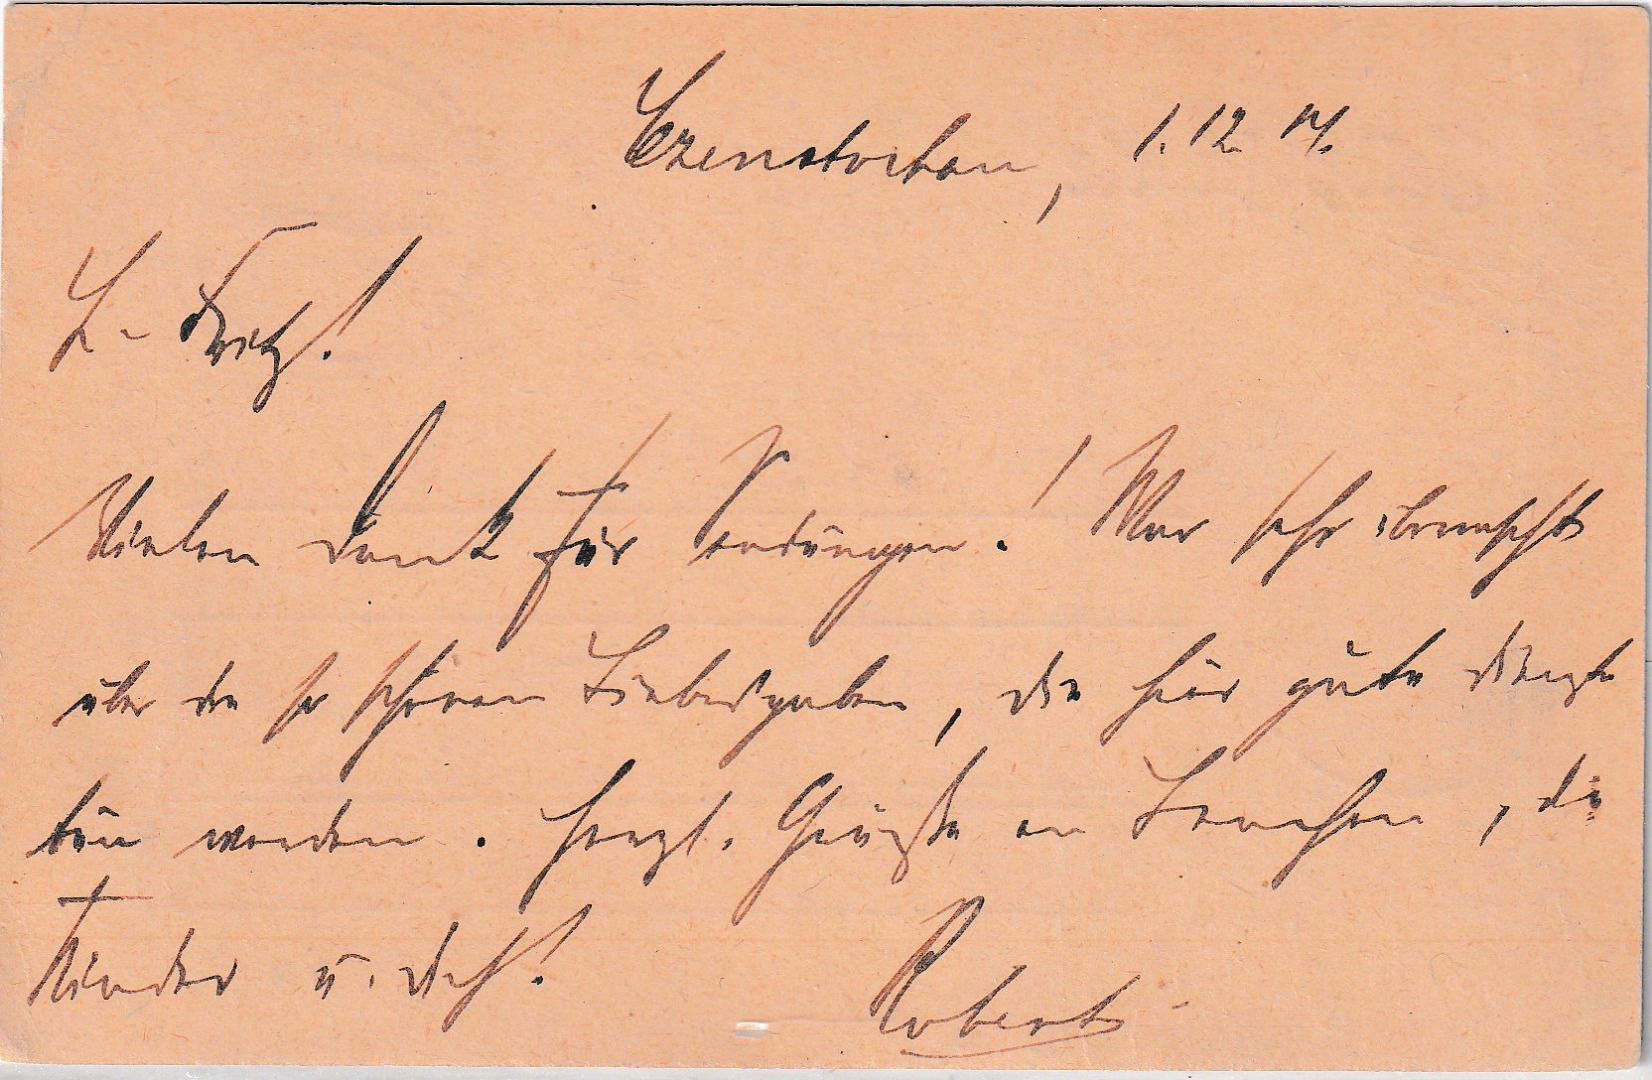 Czenstochau, 1.12.14.
L. Fritz!
Vielen Dank für Sendungen! War sehr überrascht
über die so schönen Liebesgaben, die hier gute Dienste
tun werden. Herzl. Grüße an Lenchen, die
Kinder u. Dich!
Robert